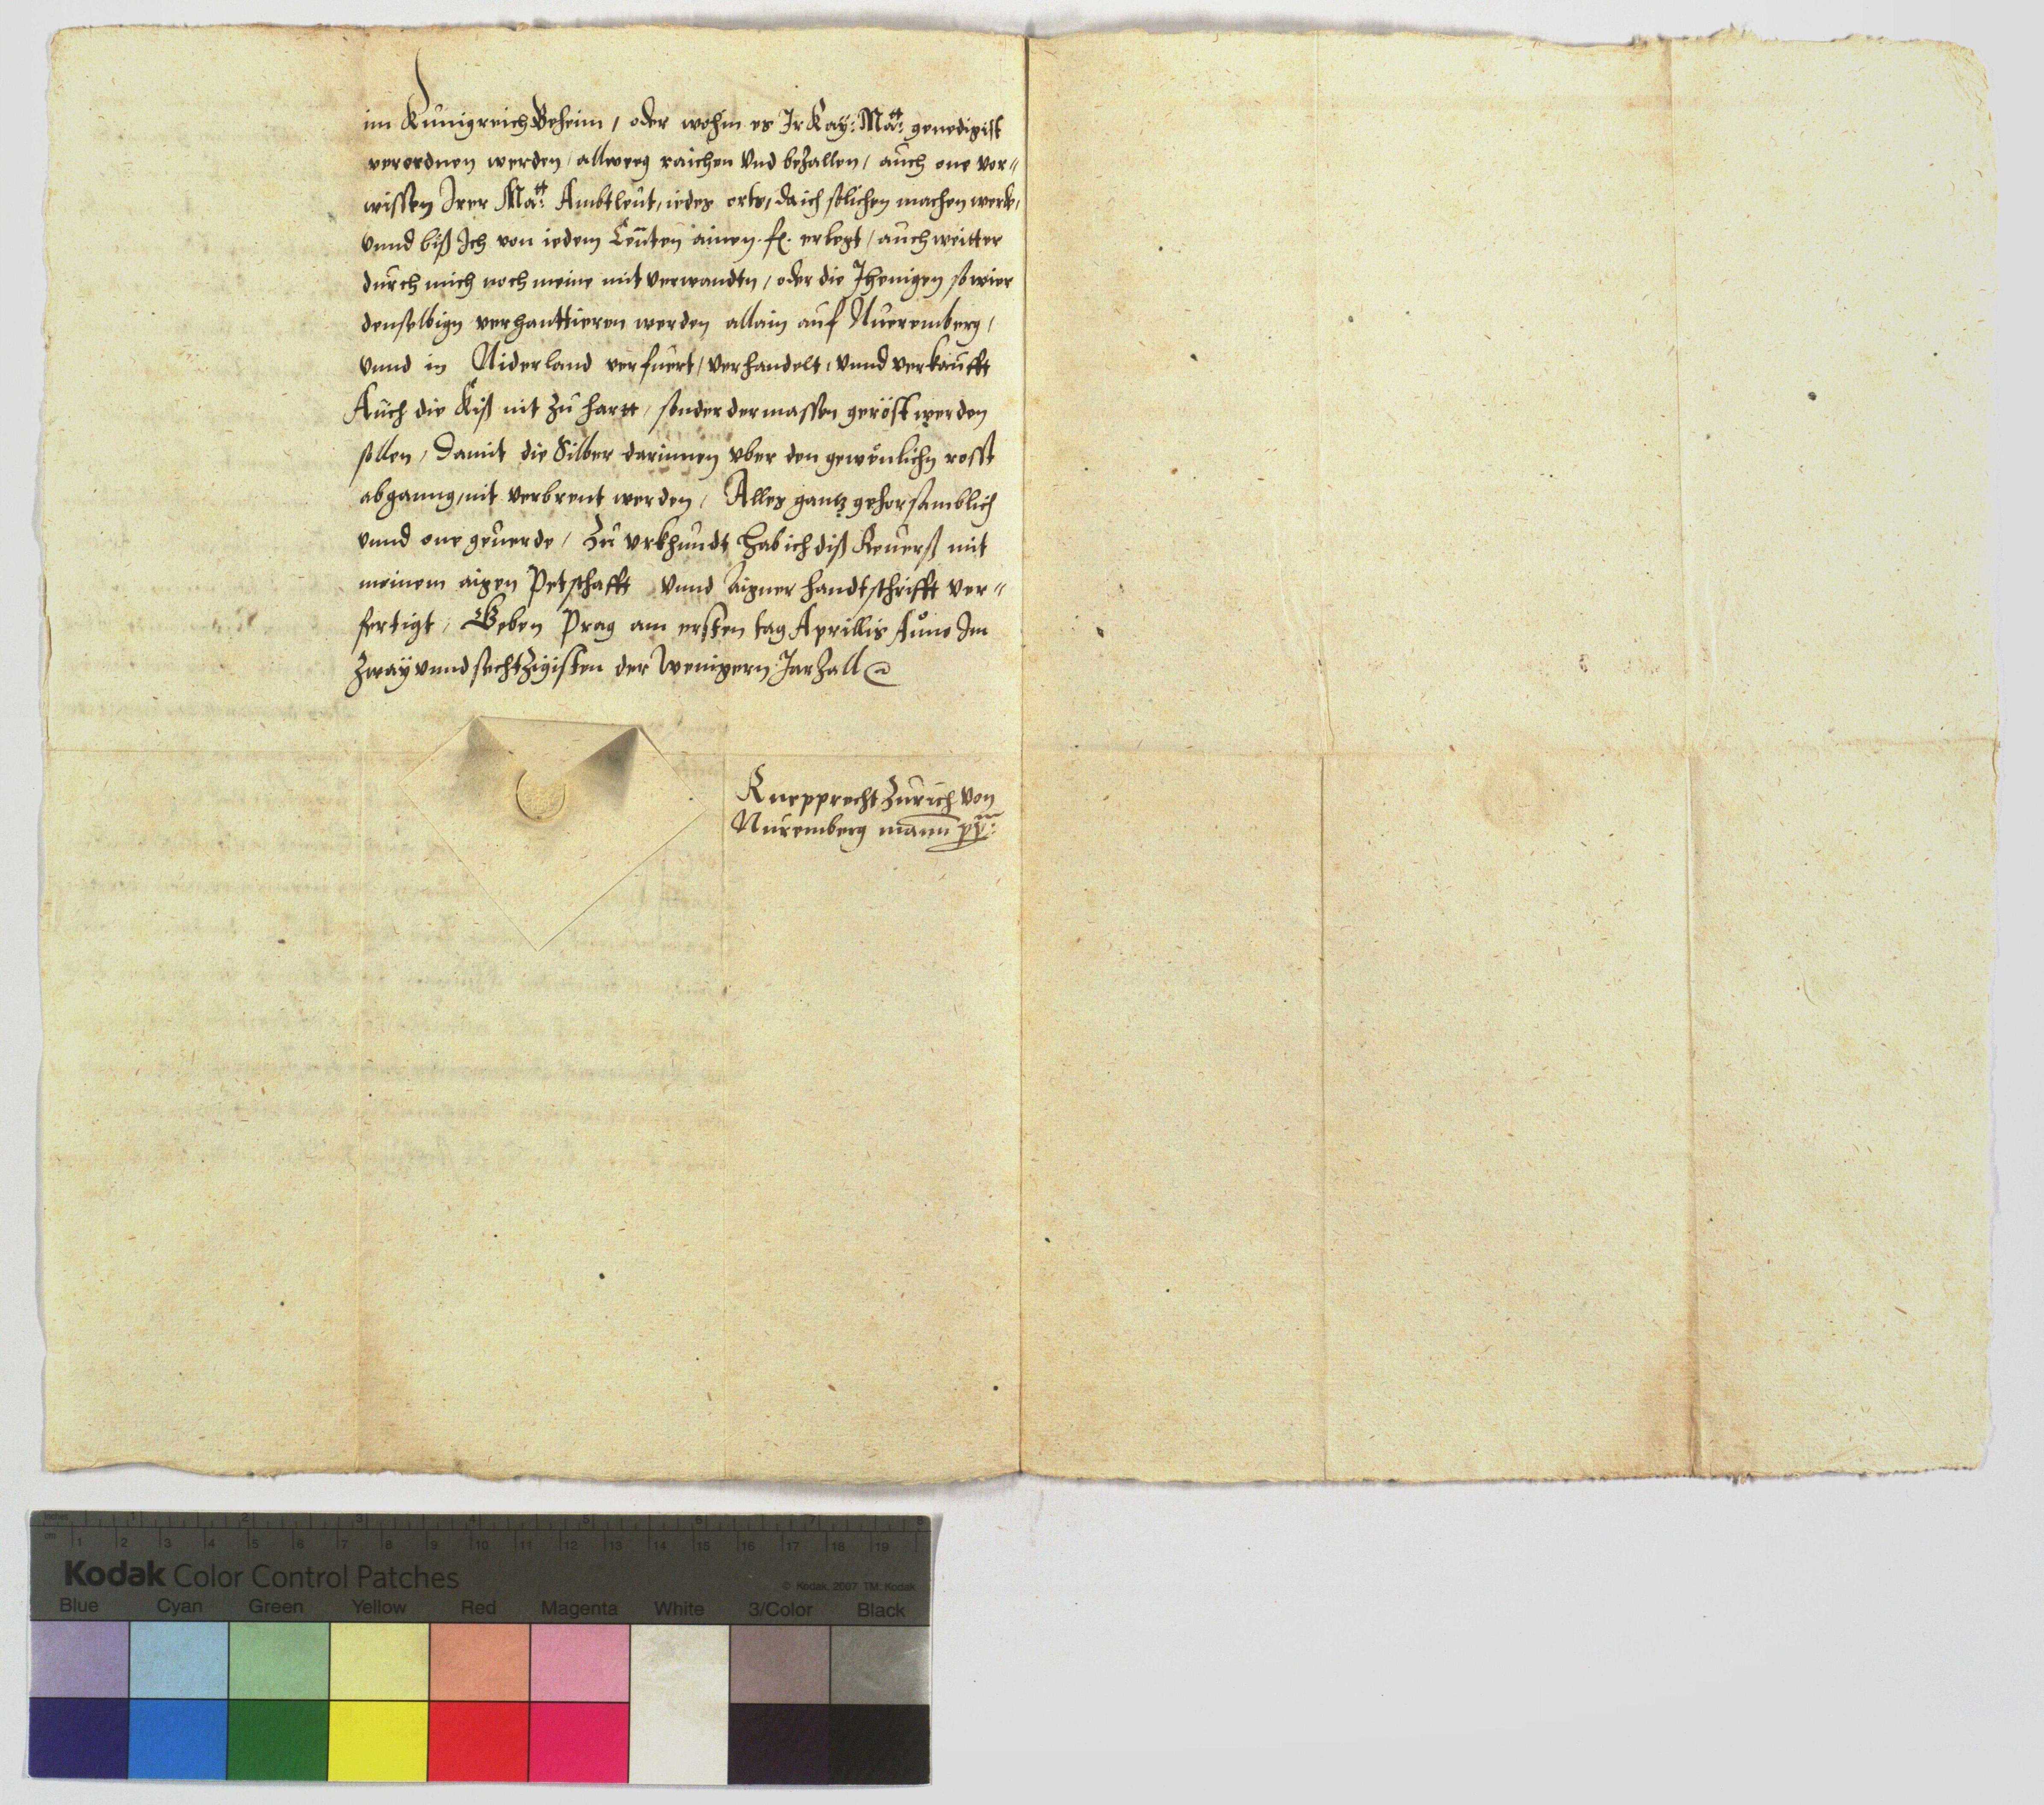 im Kunigreich Beheim, oder wohin es Ir Kay: Matt: genedigist
verordnen werden, allweeg raichen vnd bezallen, auch one vor=
wissen Irer Matt: Ambtleut, iedes orts, da ich solichen machen werde,
vnnd biß Ich von iedem Centen ainen fl. erlegt, auch weitter
durch mich noch meine mit verwandtn, oder die Jhenigen so wier
denselbign verhanttieren werden allain auf Nueremberg,
vnnd in Niderland verfuert, verhandelt, vnnd verkaufft
Auch die Kiß nit zu hartt, sonder dermassen geröst werden
sollen, damit die Silber darinnen vber den gewönlichn rosst
abganng, nit verbrent werden, Alles gantz gehorsamblich
vnnd one geuerde, Zu vrkhundt hab ich diß Reuerß mit
meinem aigen Petschafft vnnd Aigner handtschrifft ver=
fertigt, Geben Prag am ersten tag Aprillis Anno Im
zway vnnd sechtzigisten der Wenigern Jarzall
Ruepprecht Zurich von
Nuremberg mann pp:
Kodak Color Control Patches
© Kodak, 2007 TM: Kodak
Inches 1 2 3 4 5 6 7 8
cm 1 2 3 4 5 6 7 8 9 10 11 12 13 14 15 16 17 18 19
Blue Cyan Green Yellow Red Magenta White 3/Color Black